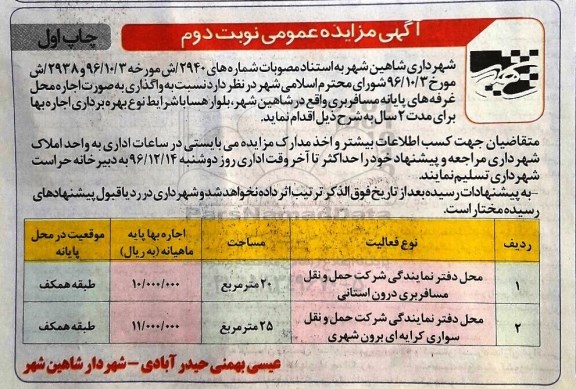 آگهی مزایده عمومی نوبت دوم
چاپ اول
شهرداری شاهین شهر به استناد مصوبات شماره های ۲۹۴۰/ش مورخه ۹۶/۱۰/۳ و ۲۹۳۸/ش
مورخ ۹۶/۱۰/۳ شورای محترم اسلامی شهر در نظر دارد نسبت به واگذاری به صورت اجاره محل
غرفه های پایانه مسافربری واقع در شاهین شهر، بلوار هسا با شرایط نوع بهره برداری اجاره بها
برای مدت ۲ سال به شرح ذیل اقدام نماید.
متقاضیان جهت کسب اطلاعات بیشتر و اخذ مدارک مزایده می بایستی در ساعات اداری به واحد املاک
شهرداری مراجعه و پیشنهاد خود را حداکثر تا آخر وقت اداری روز دوشنبه ۹۶/۱۲/۱۴ به دبیرخانه حراست
شهرداری تسلیم نمایند.
-به پیشنهادات رسیده بعد از تاریخ فوق الذکر ترتیب اثر داده نخواهد شد و شهرداری در رد یا قبول پیشنهادهای
رسیده مختار است.
ردیف نوع فعالیت مساحت اجاره بها پایه ماهیانه (به ریال) موقعیت در محل پایانه
۱ محل دفتر نمایندگی شرکت حمل و نقل مسافربری درون استانی ۲۰ مترمربع ۱۰/۰۰۰/۰۰۰ طبقه همکف
۲ محل دفتر نمایندگی شرکت حمل و نقل سواری کرایه ای برون شهری ۲۵ مترمربع ۱۱/۰۰۰/۰۰۰ طبقه همکف
عیسی بهمنی حیدر آبادی – شهردار شاهین شهر